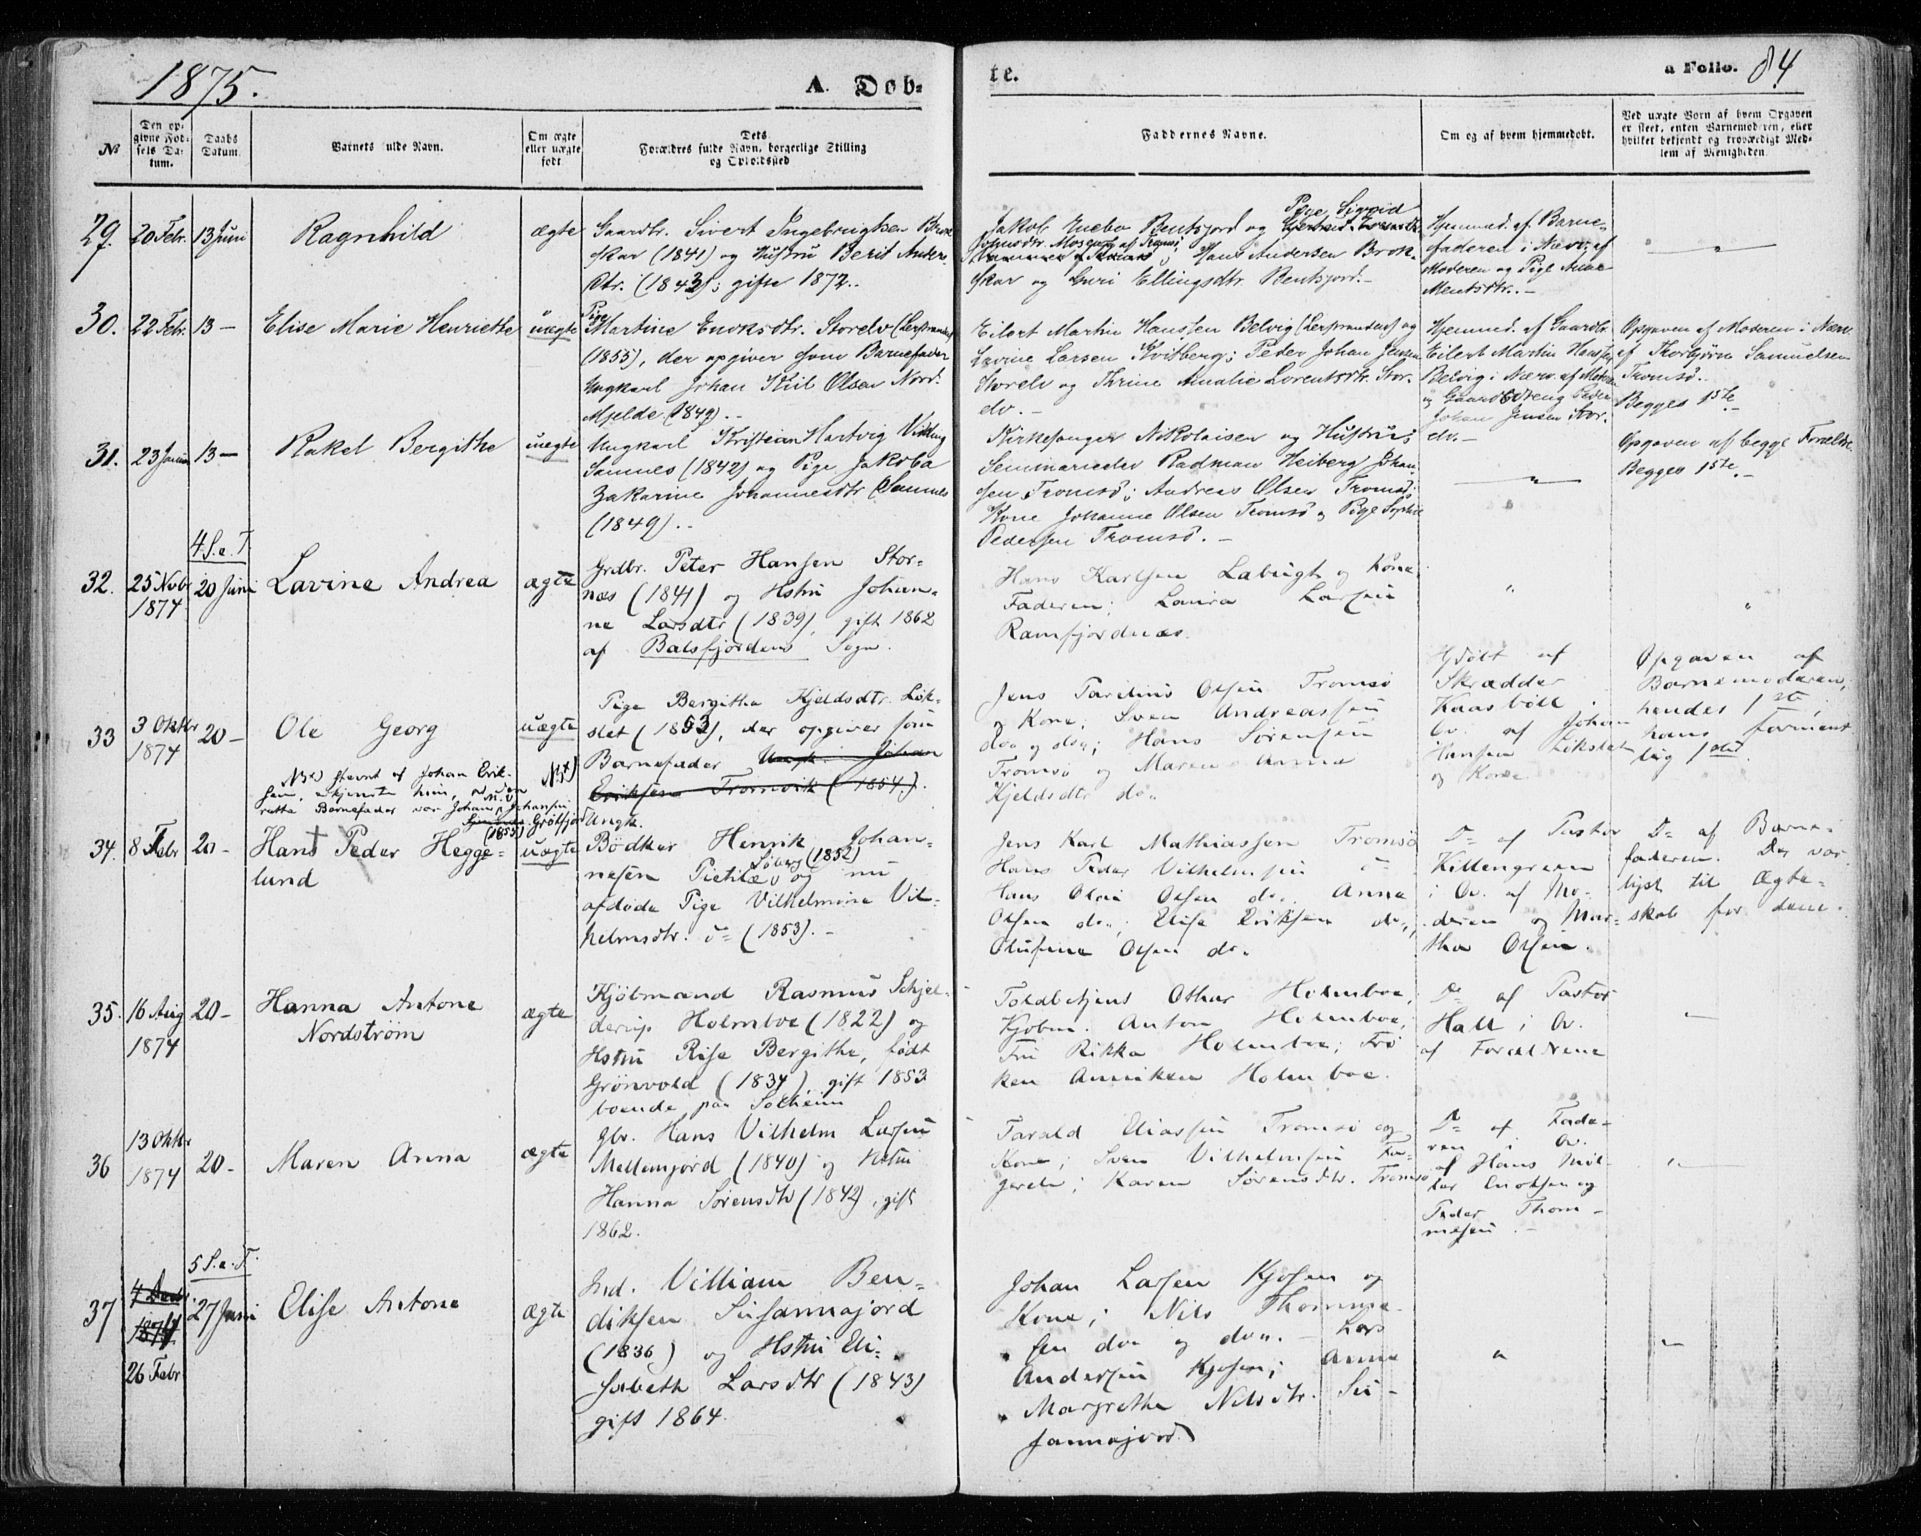 1875.
A. Dob-
te.
a Folio. 84
№
Den op-
givne Fød-
sels Da-
tum.
Daabs
Datum.
Barnets fulde Navn.
Om ægte
eller uægte
født
Dets
Forældres fulde Navn, borgerlige Stilling
og Opholdssted
Faddernes Navne.
Om og af hvem hjemmedøbt.
Ved uægte Børn af hvem Opgaven
er skeet, enten Barnemoderen, eller
hvilket bekjendt og troværdigt Med-
lem af Menigheden.
29. 20 Febr. 13 Juni Ragnhild ægte
Gaardbr. Sivert Ingebrigtsen Brok-
skar (1841) og Hustru Berit Anders-
dtr. (1843); gifte 1872.
Jakob Bentsjord og Pige Sigrid
Hans Andersen Brok-
skar og Guri Ellingsdtr. Bentsjord.-
Hjemmed. af Barne-
faderen i Nærv. af
Moderen og Pige Anne
Mentsdtr.-
30. 22 Febr. 13 - Elise Marie Henriette uægte
Pige
Martine Enoksdtr. Storelv (Lerstranden)
(1855), der opgiver som Barnefader
Ungkarl Johan Olsen Nord-
Mjelde (1849).-
Eilert Martin Hanssen Belvig (Lerstranden) og
Lavine Larsen Kvitberg; Peder Johan Jensen
Storelv og Thrine Amalie Lorentsdtr. Stor-
elv.-
Hjemmed. af Gaardbr.
Eilert Martin Hanssen
Belvig i Nærv. af Moderen
og Gaardbr Peder
Johan Jensen Stor-
elv.-
Opgaven af Moderen i Nærv.
af Thorbjørn Samuelsen
Tromsø.
Begges 1ste.-
31. 23 Januar 13 - Rakel Bergithe uægte
Ungkarl Kristian Hartvig Vikking
Sannes (1842) og Pige Jakoba
Zakarine Johannesdtr. Sannes
(1849).-
Kirkesanger Nikolaisen og Hustru;
Seminarieelev Radman Heiberg Johan-
sen, Tromsø; Andreas Olsen Tromsø;
Kone Johanne Olsen Tromsø og Pige Sophie
Pedersen Tromsø.-
Opgaven af begge Forældre
Begges 1ste.-
4 S. e. T.
32. 25 Novbr 1874 20 Juni Lavine Andrea ægte
Grdbr. Peter Hansen Stor-
næs (1841) og Hstru Johan-
ne Larsdtr (1839), gift 1862
af Balsfjordens Sogn.
Hans Karlsen Labugt og Kone;
Faderen; Laura Larsen
Ramfjordnæs.
33 3 Oktbr 1874 20 - Ole Georg uægte
Pige Bergitha Kjeldsdtr. Løk-
slet (1853), der opgiver som
Barnefader Ungk. Johan
Eriksen Tromvik (1854).
Jens Parelius Olsen Tromsø
og Kone; Sven Andreassen
do. og do.; Hans Sørensen
Tromsø og Maren Anna
Kjeldsdtr do.
Hjdøbt af
Skrædder
Kaasbøll
Ov. af Johan
Hansen Løkslet
og Kone.
Opgaven af
Barnemoderen;
hendes 1ste,
hans forment-
lig 1ste.
NB) Stevnt af Johan Erik-
sen, erkjendte hun, at den
rette Barnefader var Johan Johansen
(1855) Grøtfjord Ungk.
34. 8 Febr 20 - Hans Peder Hegge-
lund uægte
Bødker Henrik Johan-
nesen Pietilæ (1852) og nu
afdøde Pige Vilhelmine Vil-
helmsdtr. do (1853).-
Jens Karl Mathiassen Tromsø
Hans Peder Vilhelmsen do
Hans Olai Olsen do. Anna
Olsen do., Elise Eriksen do.,
Olufine Olsen do.
Do af Pastor
Killengreen
i Ov. af Mo-
deren og Mar-
tha Olsen.
Do af Barne-
faderen. Der var
lyst til Ægte-
skab for dem.
35. 16 Aug 1874 20 - Hanna Antone
Nordstrøm ægte
Kjøbmand Rasmus Schjel-
derup Holmboe (1822) og
Hstru Rise Bergithe, født
Grønvold (1834), gift 1853
boende paa Solheim
Toldbetjent Othar Holmboe,
Kjøbm. Anton Holmboe;
Fru Rikka Holmboe; Frø-
ken Anniken Holmboe.
Do af Pastor
Hall i Ov.
af Forældrene
36 13 Oktbr 1874 20 - Maren Anna ægte
Gbr. Hans Vilhelm Larsen
Mellemjord (1840) og Hstru
Hanna Sørensdtr (1842), gift
1862.
Tarald Eliassen Tromsø og
Kone; Sven Vilhelmsen Fa-
gerelv; Karen Sørensdtr. Tromsø
Do af Fade-
ren i Ov.
af Hans Møl-
ler Enoksen og
Peder Thom-
mesen.-
5 S. e. T.
37 4 Decbr. 1874 26 Febr 27 Juni Elise Antone ægte
Ind. Villiam Ben-
diksen Susannajord
(1836) og Hstru Eli-
sabeth Larsdtr (1843)
gift 1864.
Johan Larsen Kjosen og
Kone; Nils Thomme-
sen do. og do.- Lars
Andersen Kjosen; Anna
Margrethe Nilsdtr. Su-
sannajord.